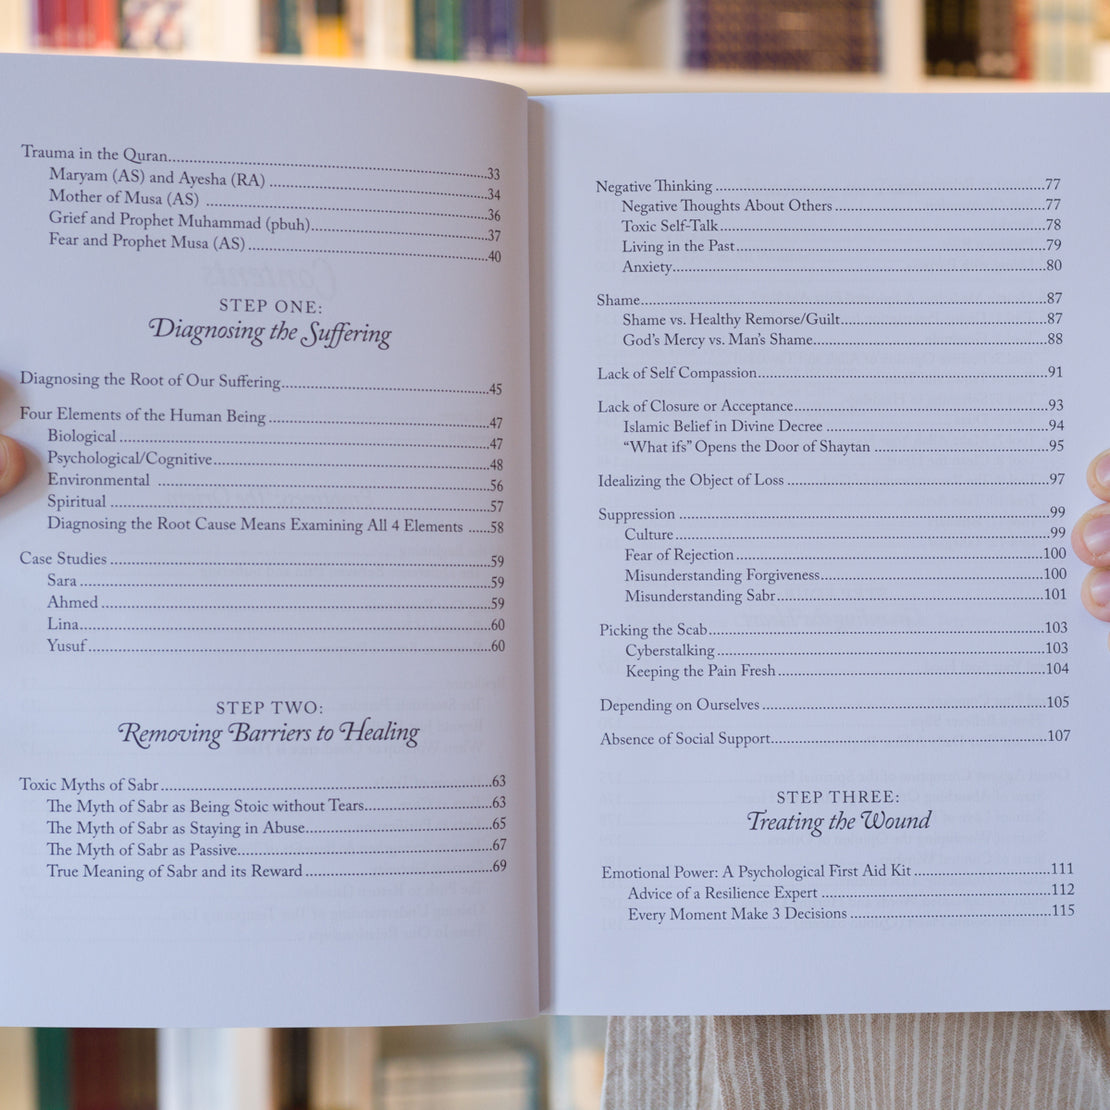 Trauma in the Quran..........33
Maryam (AS) and Ayesha (RA)..........34
Mother of Musa (AS)..........36
Grief and Prophet Muhammad (pbuh)..........37
Fear and Prophet Musa (AS)..........40
STEP ONE:
Diagnosing the Suffering
Diagnosing the Root of Our Suffering..........45
Four Elements of the Human Being..........47
Biological..........47
Psychological/Cognitive..........48
Environmental..........56
Spiritual..........57
Diagnosing the Root Cause Means Examining All 4 Elements......58
Case Studies..........59
Sara..........59
Ahmed..........59
Lina..........60
Yusuf..........60
STEP TWO:
Removing Barriers to Healing
Toxic Myths of Sabr..........63
The Myth of Sabr as Being Stoic without Tears..........63
The Myth of Sabr as Staying in Abuse..........65
The Myth of Sabr as Passive..........67
True Meaning of Sabr and its Reward..........69
Negative Thinking..........77
Negative Thoughts About Others..........77
Toxic Self-Talk..........78
Living in the Past..........79
Anxiety..........80
Shame..........87
Shame vs. Healthy Remorse/Guilt..........87
God's Mercy vs. Man's Shame..........88
Lack of Self Compassion..........91
Lack of Closure or Acceptance..........93
Islamic Belief in Divine Decree..........94
"What ifs" Opens the Door of Shaytan..........95
Idealizing the Object of Loss..........97
Suppression..........99
Culture..........99
Fear of Rejection..........100
Misunderstanding Forgiveness..........100
Misunderstanding Sabr..........101
Picking the Scab..........103
Cyberstalking..........103
Keeping the Pain Fresh..........104
Depending on Ourselves..........105
Absence of Social Support..........107
STEP THREE:
Treating the Wound
Emotional Power: A Psychological First Aid Kit..........111
Advice of a Resilience Expert..........112
Every Moment Make 3 Decisions..........115